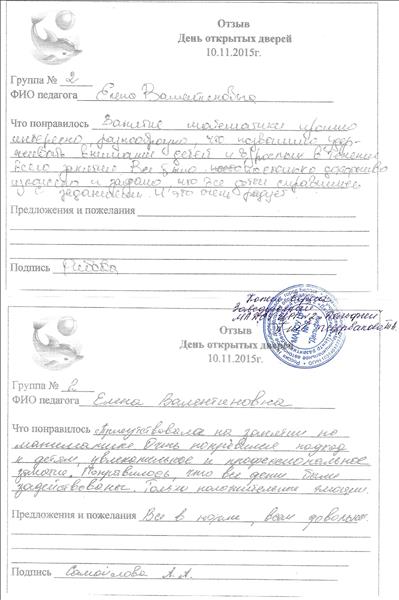 Отзыв
День открытых дверей
10.11.2015г.
Группа № 2
ФИО педагога Елена Валентиновна
Что понравилось Занятие математики прошло
интересно, разнообразно, что позволило удер-
живать внимание детей и взрослых в течение
всего занятия. Все было доступно
и что все дети справились
с заданиями. И это очень радует.
Предложения и пожелания
Подпись
Копия верна
Заведующий
Отзыв
День открытых дверей
10.11.2015г.
Группа № 2
ФИО педагога Елена Валентиновна
Что понравилось Присутствовала на занятии по
математике. Очень понравился подход
к детям, увлекательное и профессиональное
занятие. Понравилось, что все дети были
задействованы. Только положительные эмоции.
Предложения и пожелания Все в норме, всем довольна.
Подпись Самойлова А.А.